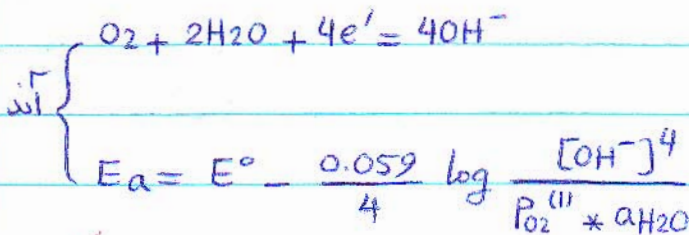 O2 + 2H2O + 4e' = 4OH⁻
آند
Ea = E° - 0.059/4 log [OH⁻]⁴ / PO2⁽¹⁾ * aH2O